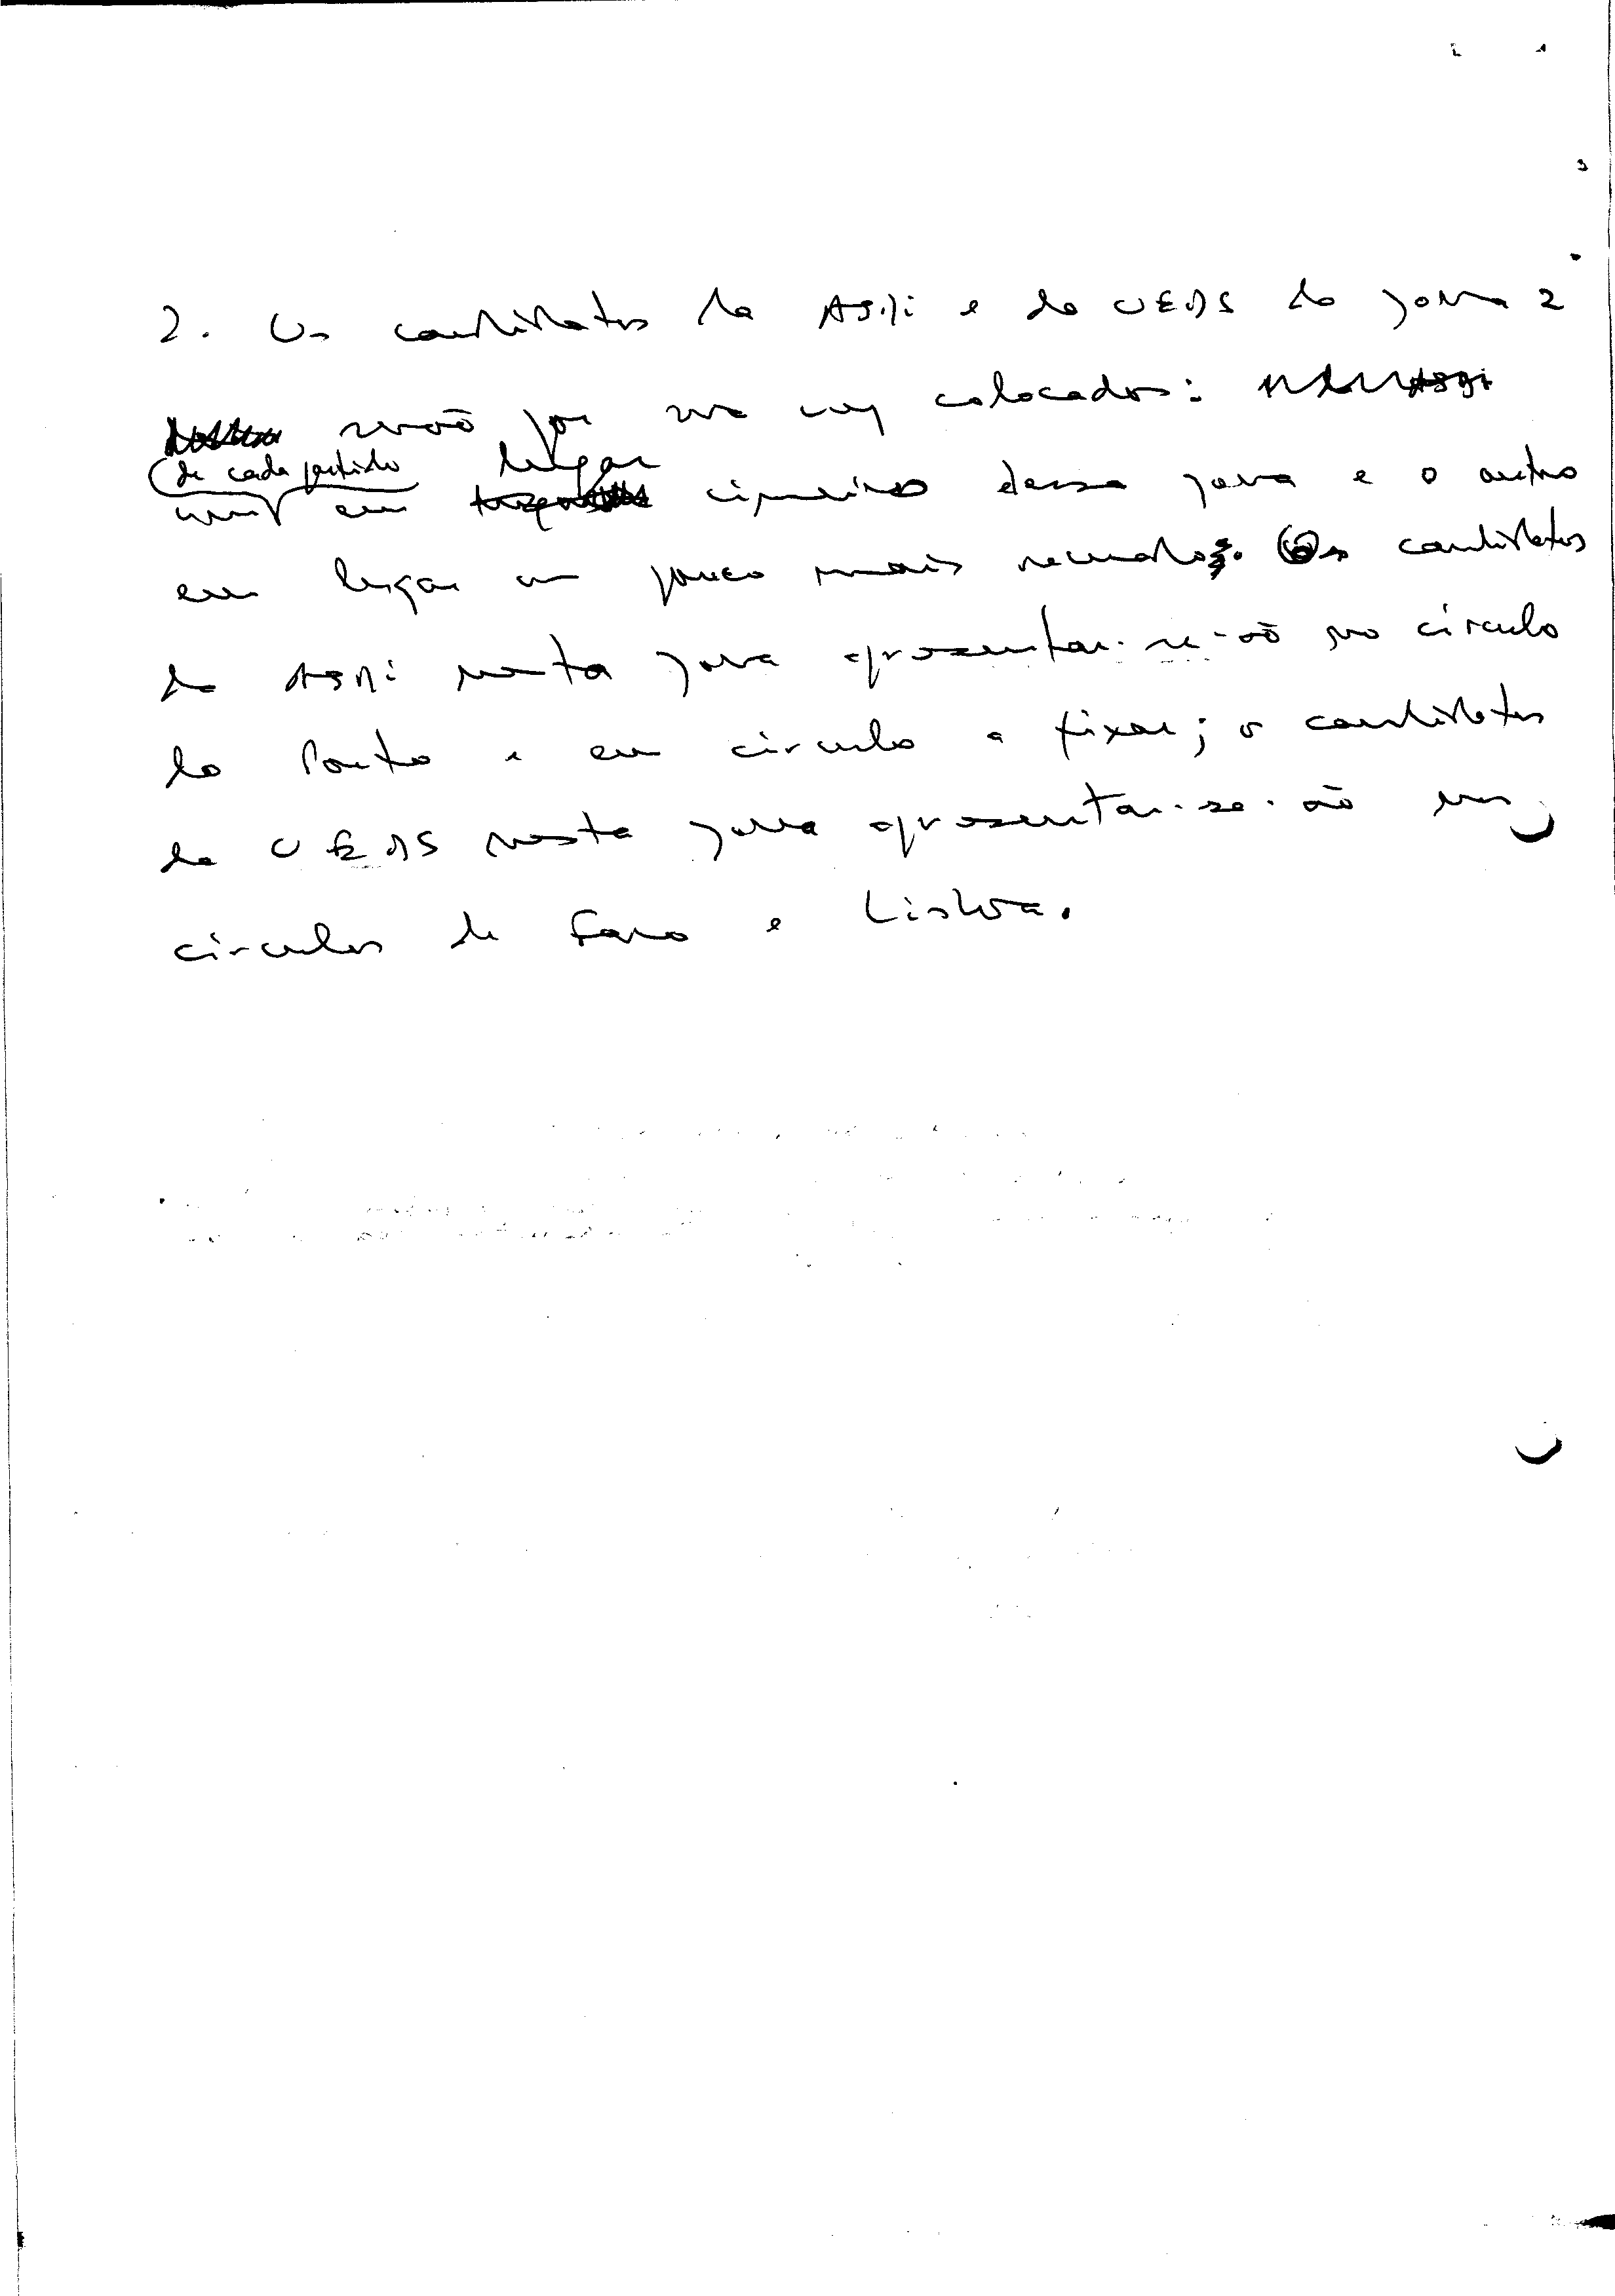 2. Os candidatos da ASDI e da UEDS da zona 2
serão por sua vez colocados: ASDI
de cada partido lugar
um em cimeiro dessa zona e o outro
em lugar um pouco mais recuado. Os candidatos
da ASDI nesta zona apresentar-se-ão no círculo
do Porto e em círculo a fixar; os candidatos
da UEDS nesta zona apresentar-se-ão nos
círculos de Faro e Lisboa.